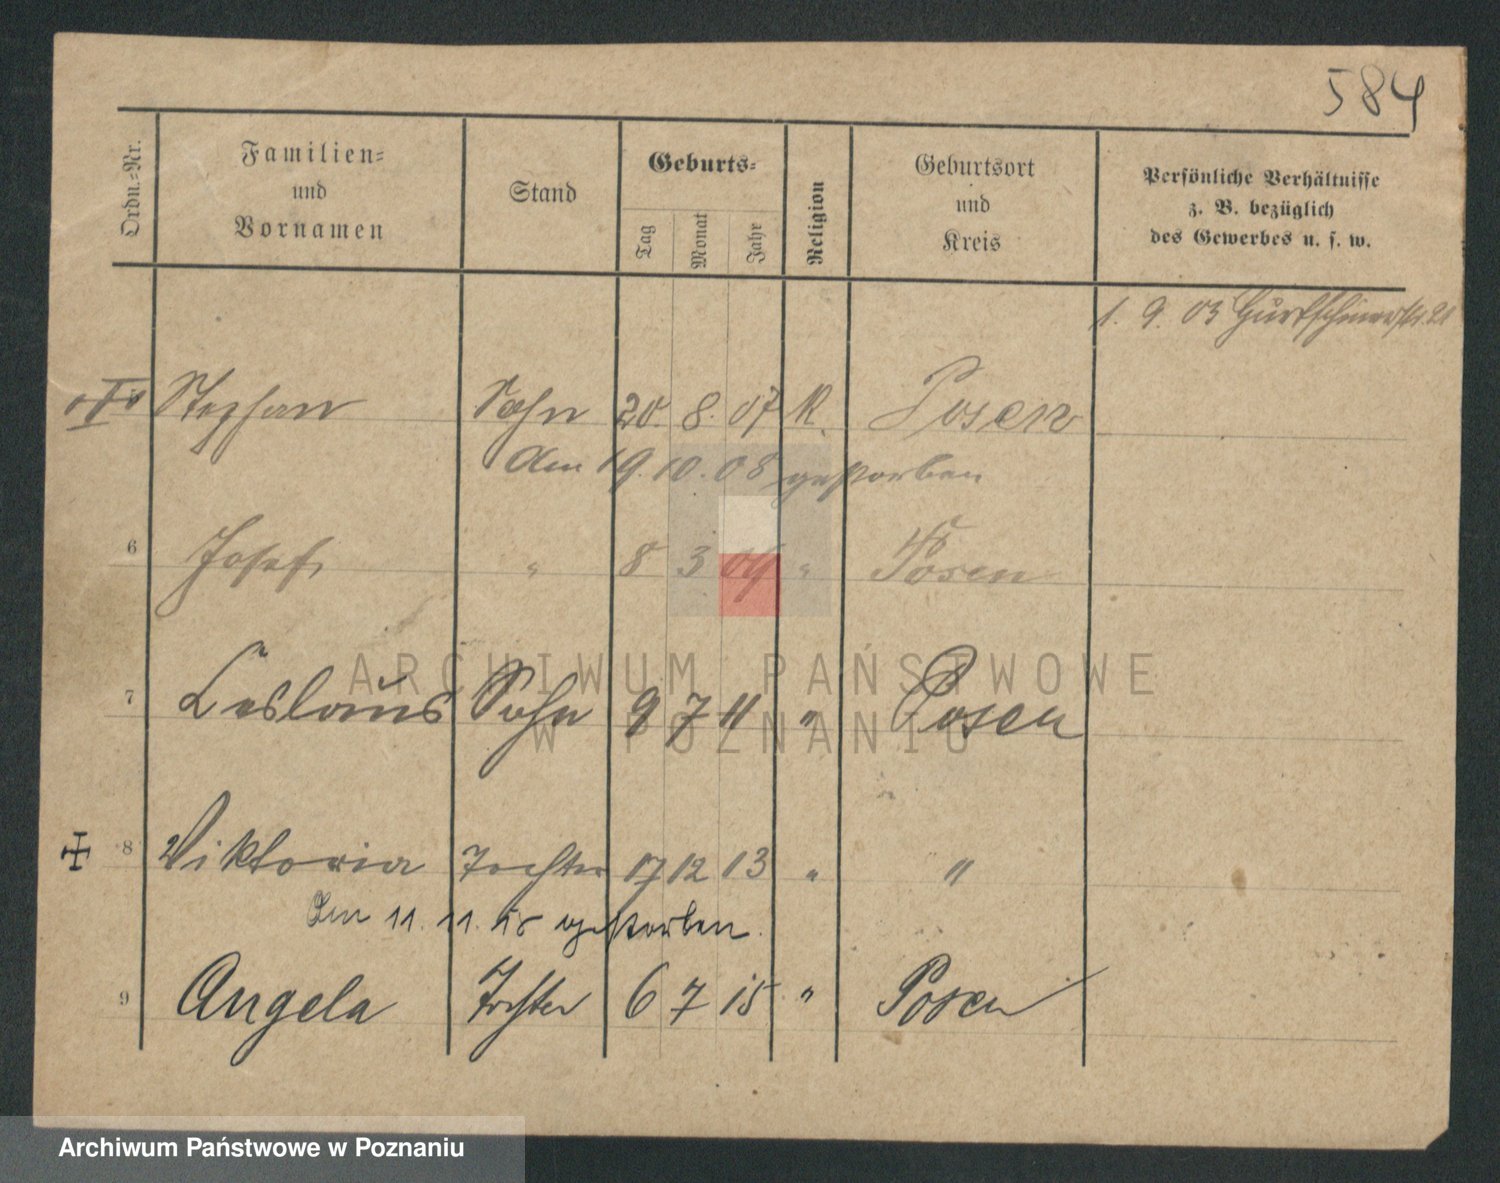 584
Ordn.-Nr.
Familien-
und
Vornamen
Stand
Geburts-
Tag
Monat
Jahr
Religion
Geburtsort
und
Kreis
Persönliche Verhältnisse
z. B. bezüglich
des Gewerbes u. s. w.
1. 9. 03
Stephan Sohn 20. 8. 07 K. Posen
Am 19. 10. 08 gestorben
6 Josef " 8 3 09 " Posen
ARCHIWUM PAŃSTWOWE
7 Ceslaus Sohn 9 7 11 " Posen
W POZNANIU
8 Viktoria Tochter 17 12 13 " "
Am 11. 11. 15 gestorben.
9 Angela Tochter 6 7 15 " Posen
Archiwum Państwowe w Poznaniu